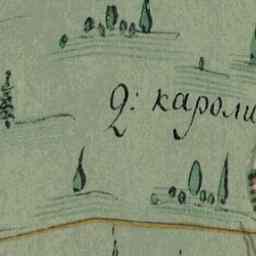 Д: кароли